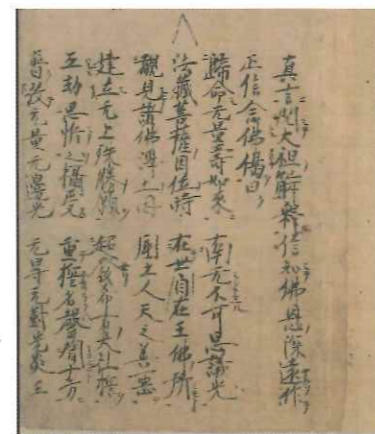 真言到大祖解釋信知佛恩深遠作
正信念佛偈曰
歸命无量壽如來 南无不可思議光
法藏菩薩因位時 在世自在王佛所
覩見諸佛淨土因 國土人天之善惡
建立无上殊勝願 超發希有大弘誓
五劫思惟之攝受 重誓名聲聞十方
普放无量无邊光 无㝵无對光炎王